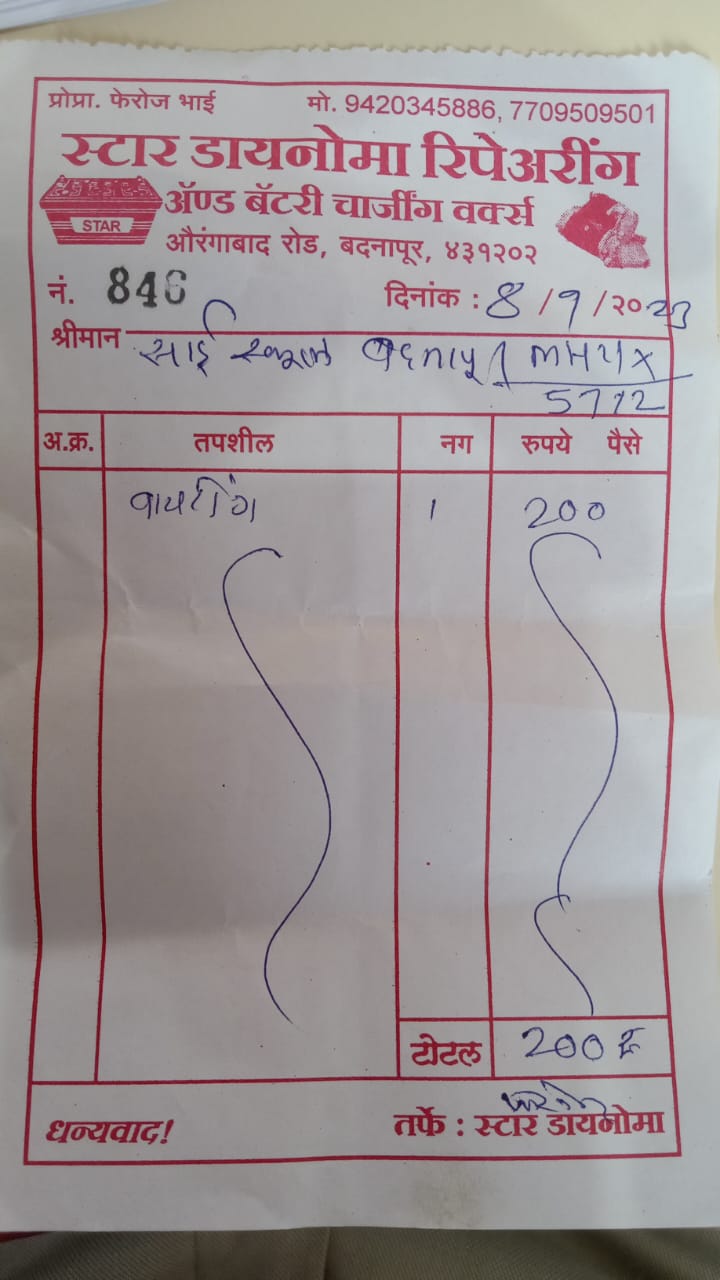 प्रोप्रा. फेरोज भाई मो. 9420345886, 7709509501
स्टार डायनोमा रिपेअरींग
STAR
ॲण्ड बॅटरी चार्जींग वर्क्स
औरंगाबाद रोड, बदनापूर, ४३१२०२
नं. 846 दिनांक : 8/9/२०23
श्रीमान साई स्कूल बदनापूर
5712
अ.क्र. तपशील नग रुपये पैसे
वायरींग 1 200
टोटल 200
धन्यवाद! तर्फे : स्टार डायनोमा